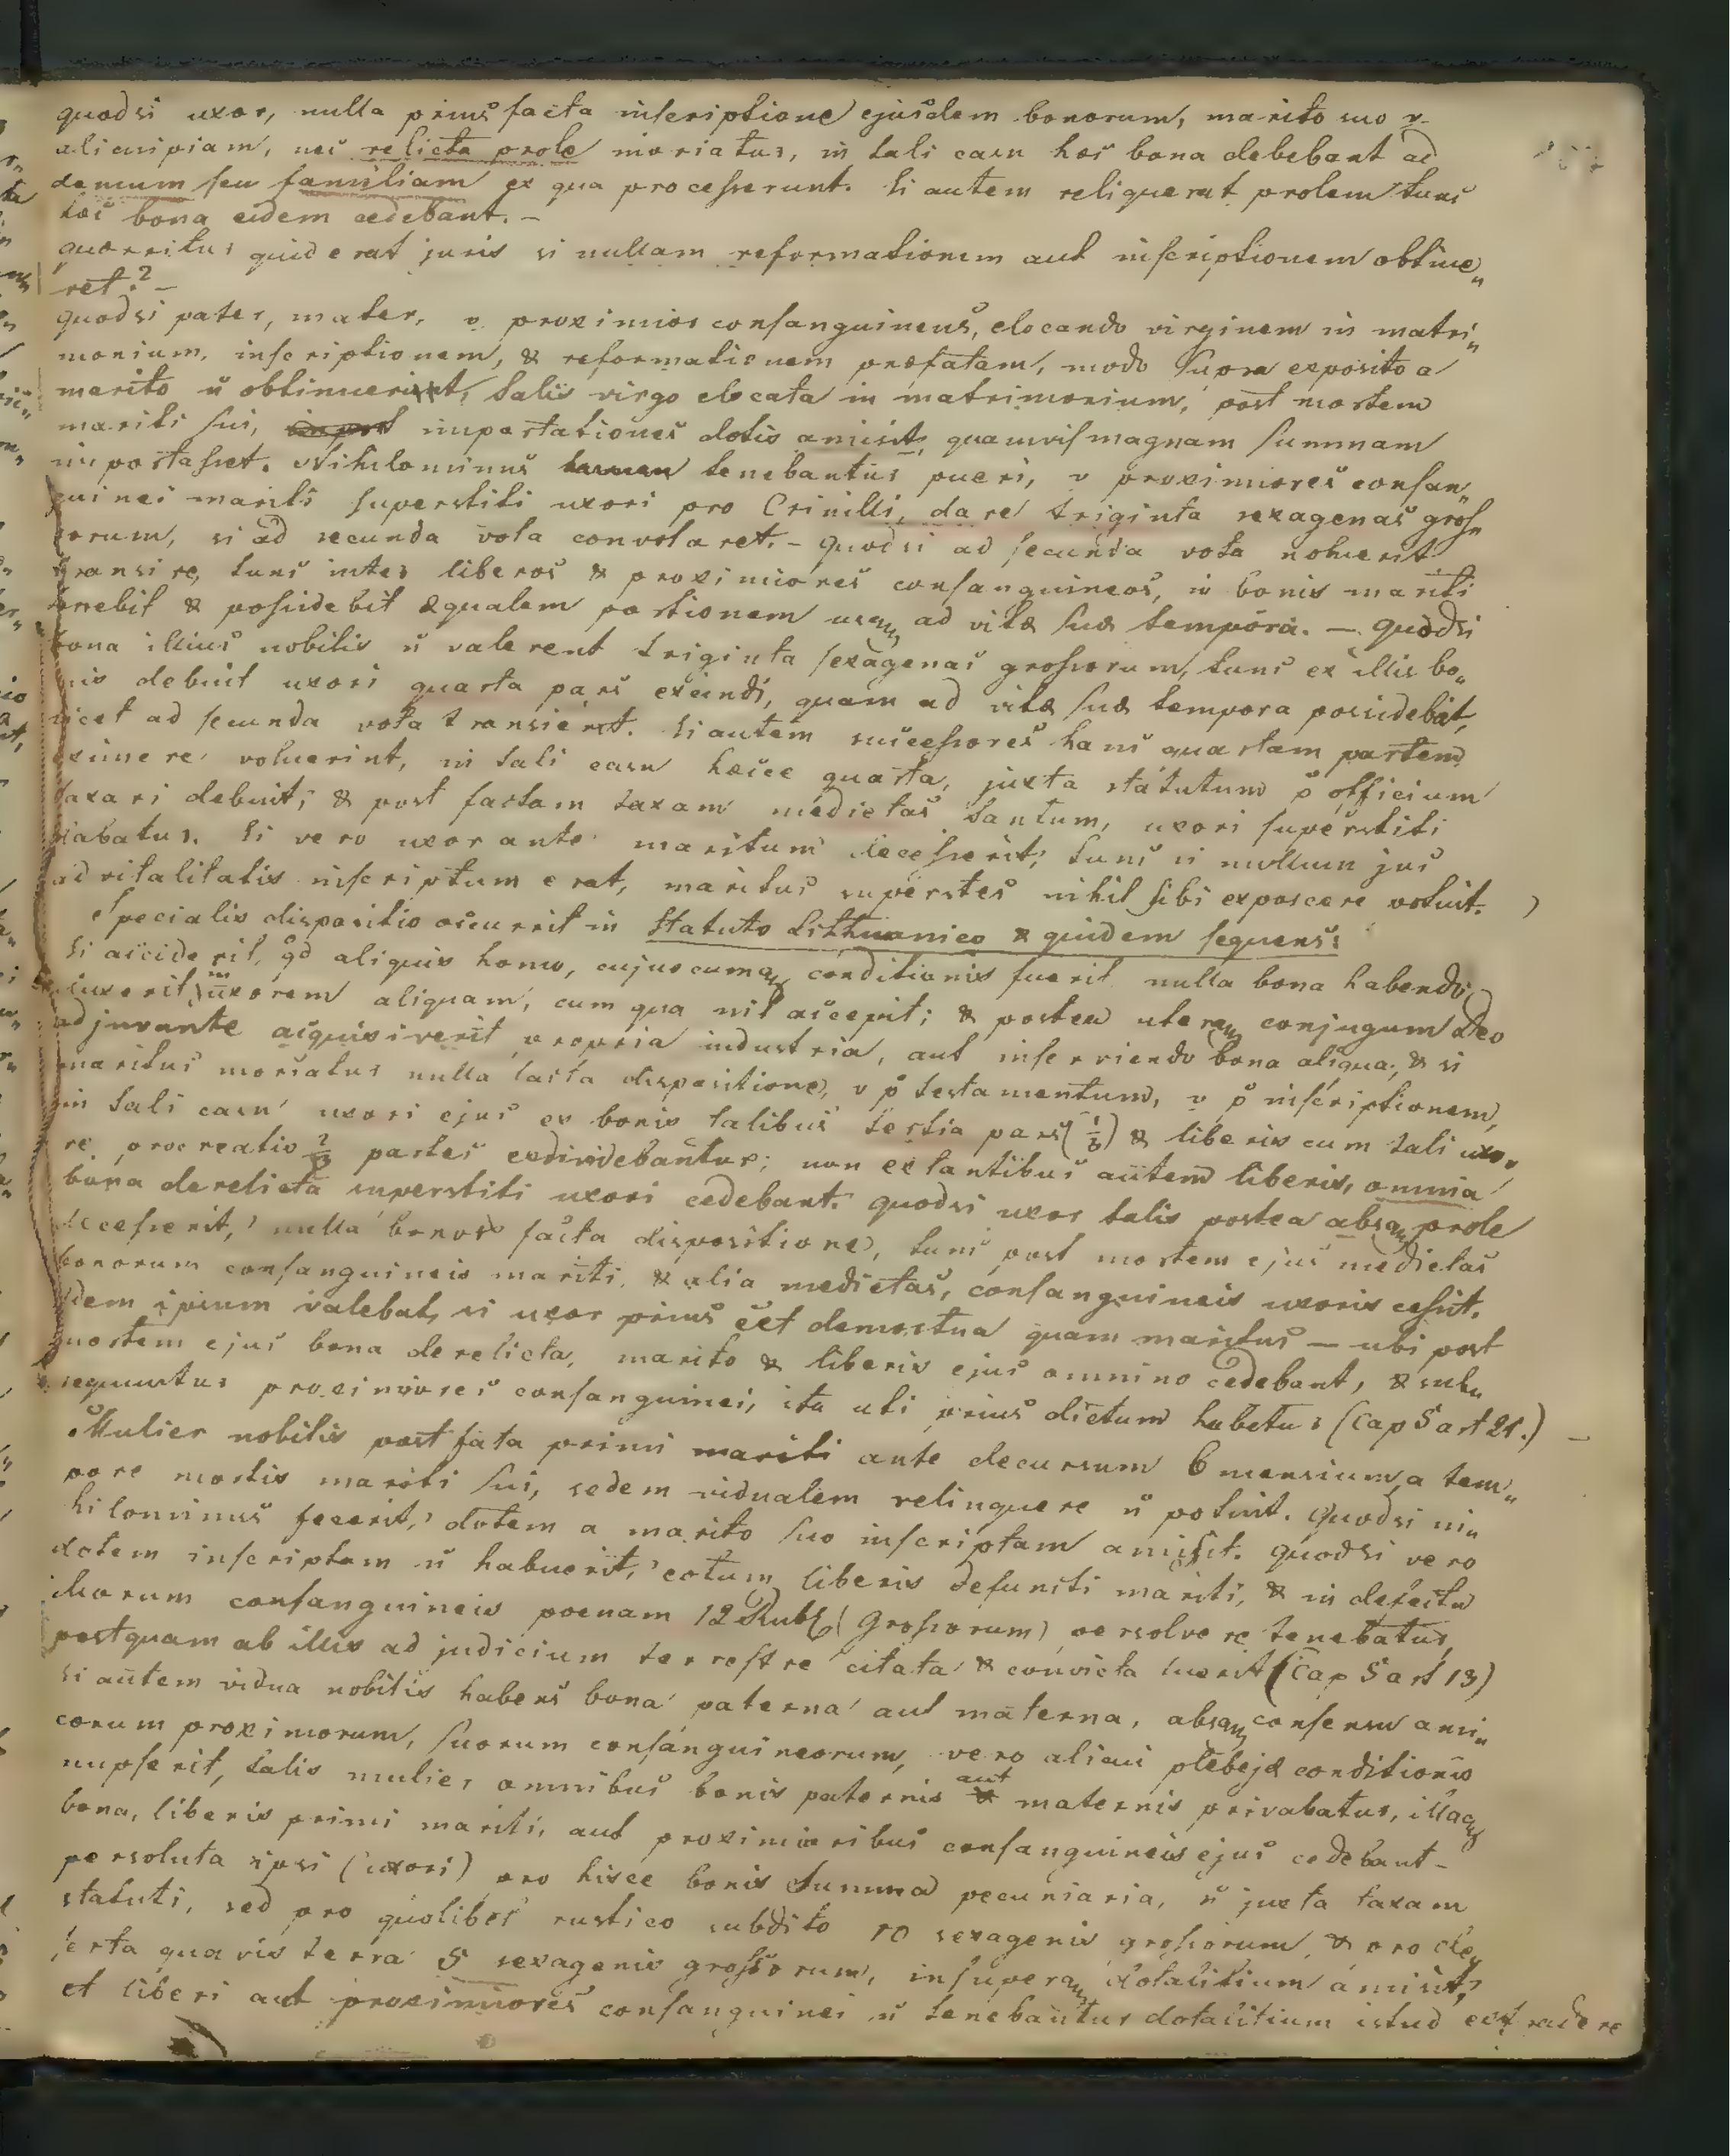 quodsi uxor, nulla prius facta inscriptione ejusdem bonorum, marito suo v.
alicuipiam, nec relicta prole moriatur, in tali casu hæc bona debebant ad
domum seu familiam ex qua processerunt. Si autem reliquerat prolem tunc
hæc bona eidem cedebant. –
quærritur quid erat juris si nullam reformationem aut inscriptionem obtine„
ret.? –
quodsi pater, mater, v. proximior consanguineus, elocando virginem in matri„
monium, inscriptionem, & reformationem præfatam, modo supra exposito a
marito n̄ obtinuerit, talis virgo elocata in matrimonium, post mortem
mariti sui, importationes dotis amisit, quamvis magnam summam
importasset. Nihilominus tamen tenebantur pueri, v proximiores consan„
guinei mariti superstiti uxori pro Crinilli, dare triginta sexagenas gross„
orum, si ad secunda vota convolaret. – quodsi ad secunda vota noluerit
transire, tunc inter liberos & proximiores consanguineos, in bonis mariti
tenebit & possidebit æqualem portionem usq ad vitæ suæ tempora. – quodsi
bona illius nobilis n̄ valerent triginta sexagenas grossorum, tunc ex illis bo„
nis debuit uxori quarta pars excindi, quam ad vitæ suæ tempora possidebat,
licet ad secunda vota transierit. Si autem successores hanc quartam partem
eximere voluerint, in tali casu hæcce quarta, juxta statutum p̄ officium
taxari debuit; & post factam taxam medietas tantum, uxori superstiti
dabatur. Si vero uxor ante maritum decesserit; tunc si nullum jus
advitalitatis inscriptum erat, maritus superstes nihil sibi exposcere potuit.
Specialis dispositio occurrit in Statuto Lithuanico & quidem sequens:
Si acciderit, qd aliquis homo, cujuscumq conditionis fuerit nulla bona habendo
duxerit in uxorem aliquam, cum qua nil accepit; & postea uterq conjugum Deo
adjuvante acquisiverit propria industria, aut inserviendo bona aliqua, & si
maritus moriatur nulla facta dispositione, v p̄ testamentum, v p̄ inscriptionem,
in tali casu uxori ejus ex bonis talibus tertia pars (1/3) & liberis cum tali uxo„
re procreatis 2/3 partes exdividebantur; non extantibus autem liberis, omnia
bona derelicta superstiti uxori cedebant. quodsi uxor talis postea absq prole
decesserit, nulla bonor facta dispositione, tunc post mortem ejus medietas
bonorum consanguineis mariti, & alia medietas, consanguineis uxoris cessit.
Idem ipsum valebat, si uxor prius eet demortua quam maritus – ubi post
mortem ejus bona derelicta, marito & liberis ejus omnino cedebant, & subs„
sequuntur proximiores consanguinei, ita uti prius dictum habetur (Cap 5 art 21.) –
Mulier nobilis post fata primi mariti ante decursum 6 mensium a tem„
pore mortis mariti sui, sedem vidualem relinquere n̄ potuit. Quodsi ni„
hilominus fecerit, dotem a marito suo inscriptam amisit. quodsi vero
dotem inscriptam n̄ habuerit, eotum liberis defuncti mariti, & in defectu
illorum consanguineis poenam 12 Rubl (Grossorum) persolvere tenebatur,
postquam ab illis ad judicium terrestre citata & convicta fuerit (Cap 5 art 13)
Si autem vidua nobilis habens bona paterna aut materna, absq consensu ami„
corum proximorum, suorum consanguineorum, vero alicui plebejæ conditionis
nupserit, talis mulier omnibus bonis paternis aut maternis privabatur, illaq
bona, liberis primi mariti, aut proximioribus consanguineis ejus cedebant –
persoluta ipsi (uxori) pro hisce bonis Summa pecuniaria, n̄ juxta taxam
statuti, sed pro quolibet rustico subdito 10 sexagenis grossorum, & pro de„
serta quavis terra 5 sexagenis grossorum, insuperq dotalitium amisit,
et liberi aut proximiores consanguinei n̄ tenebantur dotalitium istud extradere